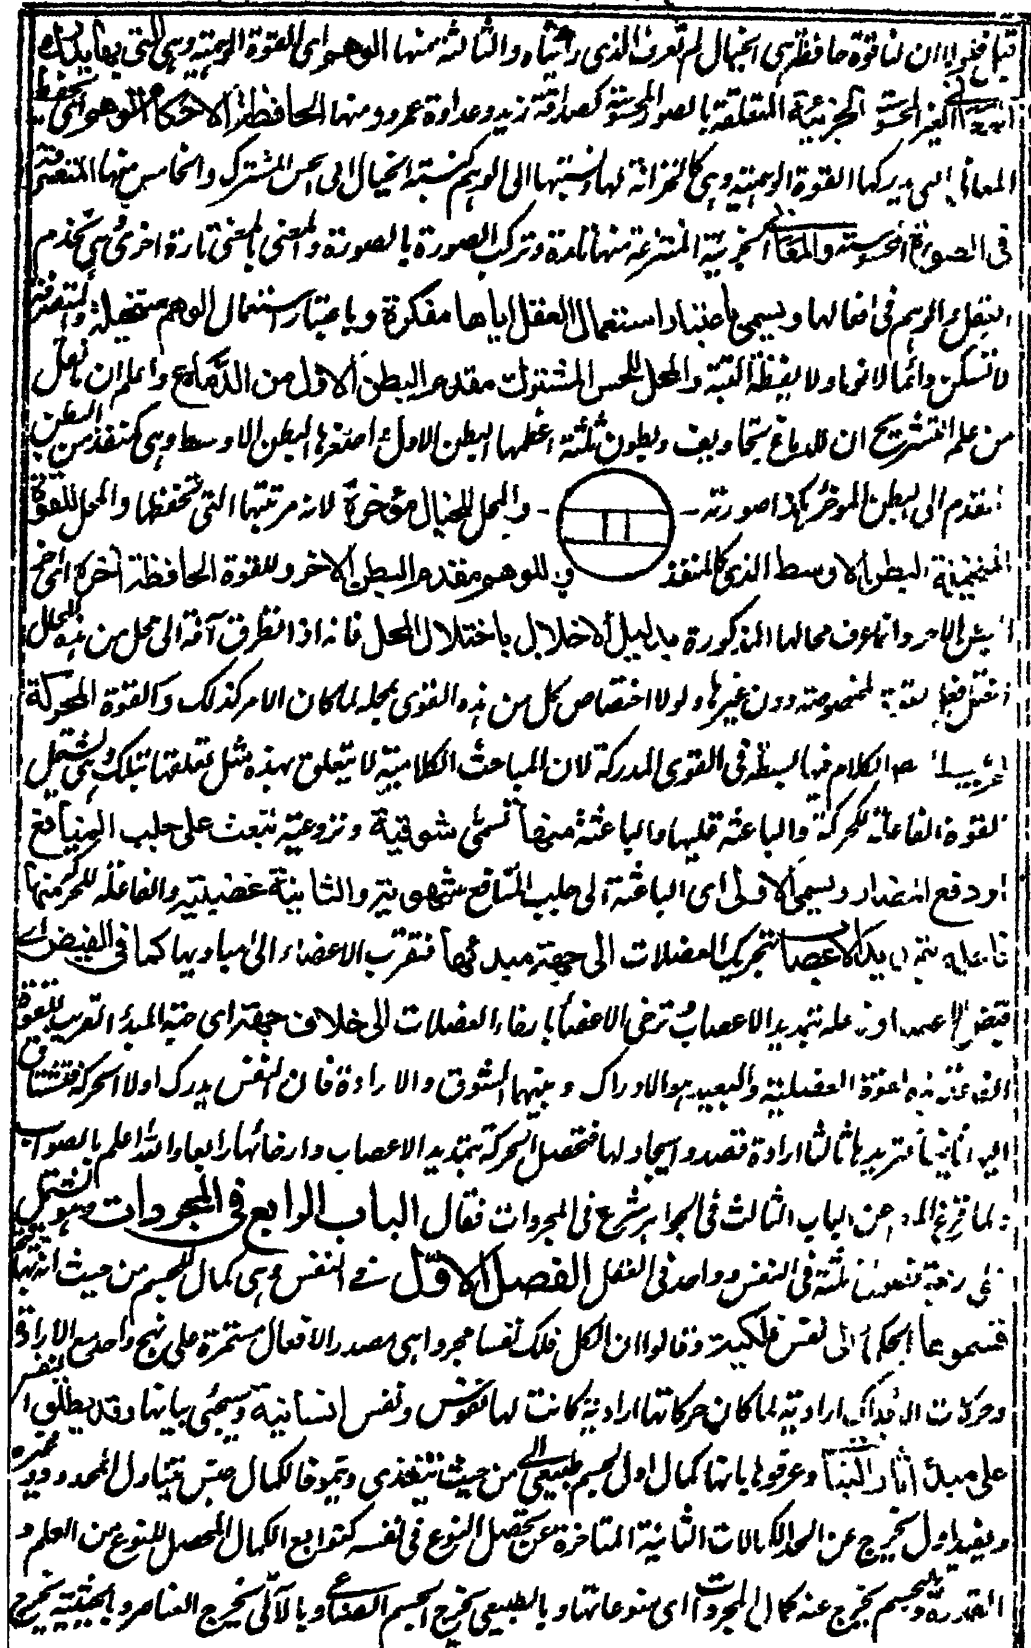 ان لنا قوة حافظة هى الخيال لم تعرف الذى رأيناه والثالثة منها الوهم هو اى القوة الوهمية وهى التى بها يدرك
الغير المحسوسة الجزئية المتعلقة بالصور المحسوسة كصداقة زيد وعداوة عمرو ومنها الحافظة لأحكام الوهم هو اى تحفظ
المعانى التى يدركها القوة الوهمية وهى كالخزانة لها ونسبتها الى الوهم كنسبة الخيال الى الحس المشترك والخامس منها المتصرفة
فى الصورة المحسوسة والمعانى الجزئية المنتزعة منها تارة وتركب الصورة بالصورة والمعنى بالمعنى تارة اخرى هى تخدم
العقل والوهم فى افعالها ويسمى باعتبار استعمال العقل اياها مفكرة وباعتبار استعمال الوهم متخيلة والمتصرفة
لا تسكن دائما لا نوما ولا يقظة البتة والمحل للحس المشترك مقدم البطن الاول من الدماغ واعلم ان
من علم التشريح ان للدماغ تجاويف وبطون ثلثة اعظمها البطن الاول واصغرها البطن الاوسط وهى كمنفذ من البطن
المقدم الى البطن الموخر هكذا صورته - والمحل للخيال مؤخره لانه مرتبتها التى تحفظها والمحل للقوة
المتخيلة البطن الاوسط الذى كالمنفذ وللوهم هو مقدم البطن الاخر وللقوة الحافظة اخره اى
وانما عرف محالها المذكورة بدليل الاختلال باختلال المحل فانه اذا تطرق آفة الى محل من هذه المحال
اختل فعل قوة مخصوصة دون غيرها ولولا اختصاص كل من هذه القوى بمحله لما كان الامر كذلك والقوة المحركة
الكلام فيها لبسطه فى القوى المدركة لان المباحث الكلامية لا يتعلق بهذه مثل تعلقها بتلك وهى يشتمل
القوة الفاعلة للحركة والباعثة عليها والباعثة منها تسمى شوقية ونزوعية تبعث على جلب المنافع
او دفع المضار ويسمى الاولى اى الباعثة الى جلب المنافع شهوية والثانية غضبية والفاعلة للحركة منها
بتمديد الاعصاب تحريك العضلات الى جهة مبدئها فتقرب الاعضاء الى مباديها كما فى القبض اى
قبض الاعصاب او فاعلة بتمديد الاعصاب ترخى الاعضا بارخاء العضلات الى خلاف جهته اى جهة المبدء القريب للقوة
هذه القوة العضلية والبعيد هو الادراك وبينهما الشوق والارادة فان النفس يدرك اولا الحركة فتشتاق
اليها ثانيا فتريدها ثالثا ارادة قصد وايجاد لها فتحصل الحركة بتمديد الاعصاب وارخائها رابعا والله اعلم بالصواب
ولما فرغ المص عن الباب الثالث فى الجواهر شرع فى المجردات فقال الباب الرابع فى المجردات وهو يشتمل
على اربعة فصول ثلثة فى النفس وواحد فى العقل الفصل الاول فى النفس وهى كمال للجسم من حيث
قسموها الحكماء الى نفس فلكية وقالوا ان لكل فلك نفسا مجردا هى مصدر الافعال مستمرة على نهج واحد مع الارادة
وحركات الافلاك ارادية لما كان حركاتها ارادية كانت لها نفوس ونفس انسانية وسيجئ بيانها وقد يطلق النفس
على مبدأ آثار النبات وعرفوها بانها كمال اول لجسم طبيعى آلى من حيث يتغذى وينمو فالكمال جنس يتناول المحدود وغيره
وبقيد اول يخرج عن الحد الكمالات الثانية المتاخرة عن تحصل النوع فى نفسه كتوابع الكمال المحصل للنوع من العلم و
القدرة وبالجسم يخرج عنه كمال المجردات اى منوعاتها وبالطبيعى يخرج الجسم الصناعى وبالآلى يخرج العناصر وبالحيثية يخرج